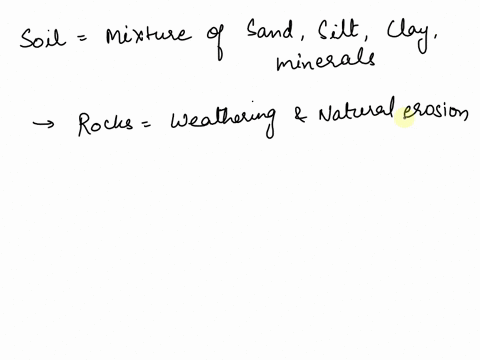 Soil = Mixture of Sand, Silt, Clay,
minerals
→ Rocks = Weathering & Natural erosion